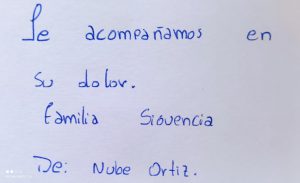 Le acompañamos en
su dolor.
Familia Siguencia
De: Nube Ortiz.